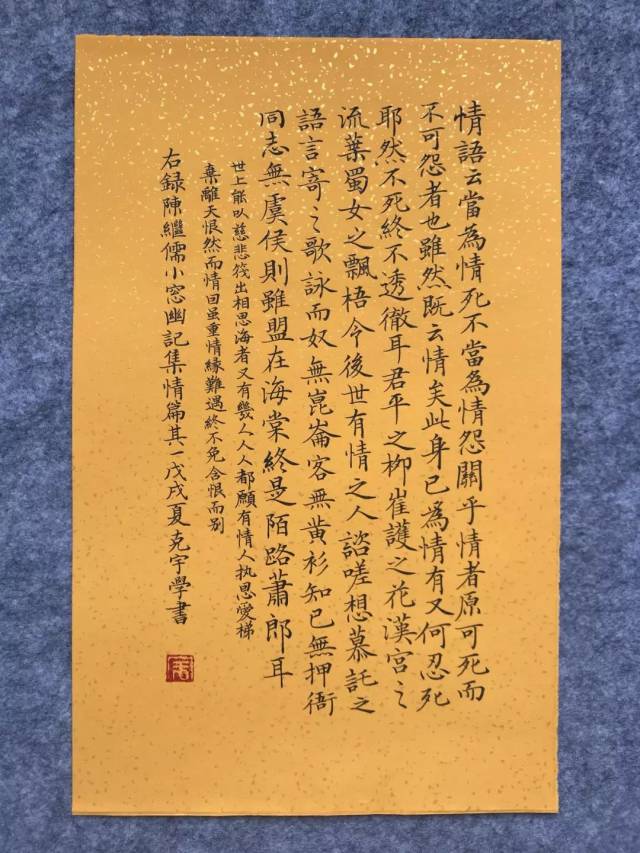 情語云當為情死不當為情怨關乎情者原可死而
不可怨者也雖然既云情矣此身已為情有又何忍死
耶然不死終不透徹耳君平之柳崔護之花漢宮之
流葉蜀女之飄梧令後世有情之人諮嗟想慕託之
語言寄之歌詠而奴無崑崙客無黄衫知已無押衙
同志無虞侯則雖盟在海棠終是陌路蕭郎耳
世上能以慈悲筏出相思海者又有幾人人人都願有情人执思愛梯
棄離天恨然而情回虽重情緣難遇終不免含恨而别
右録陳繼儒小窓幽記集情篇其一戊戌夏克宇學書